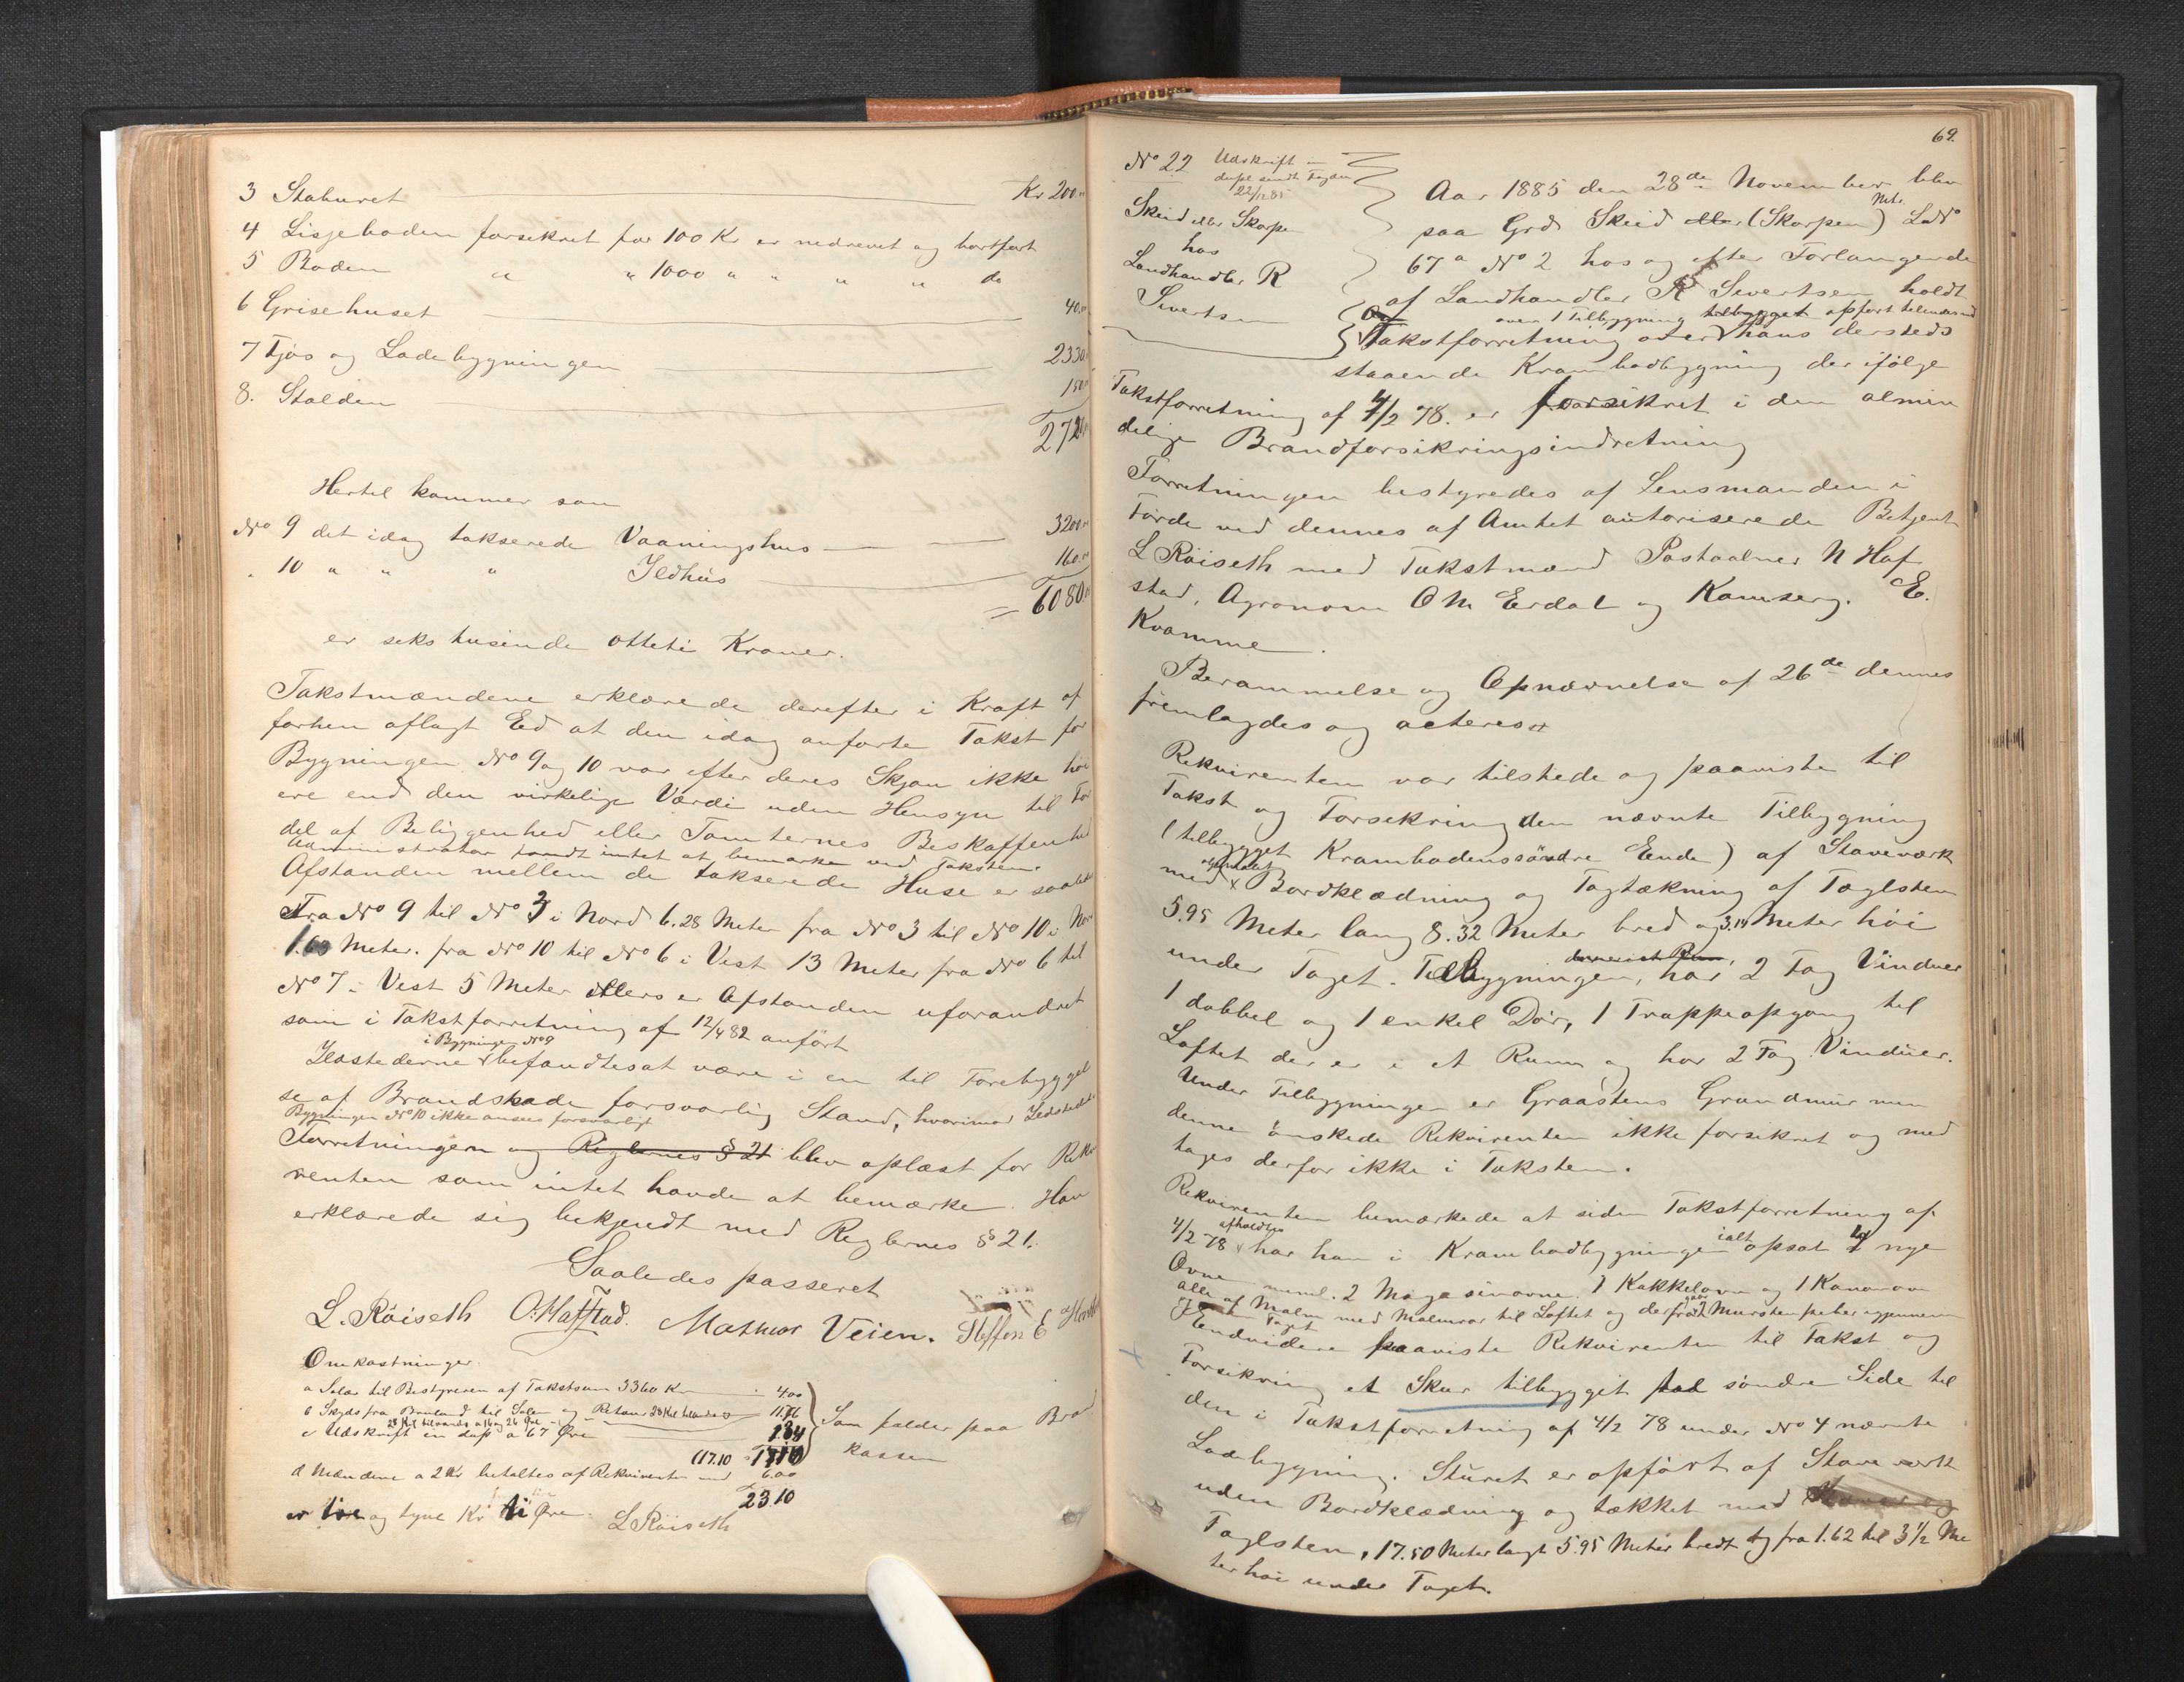 3 Staburet Kr 200 "
4 Lisjeboden forsekret for 100 Kr er nedrevet og bortført
5 Boden " " 1000 " " " " do
6 Grisehuset 40.
7 Fjøs og Ladebygningen 2330
8. Stalden 150
2720
Hertil kommer som
No 9 det idag takserede Vaaningshus 3200
" 10 " " " Ildhus 160.
= 6080
er seks tusinde otteti Kroner.
Takstmændene erklærede derefter i Kraft af
forhen aflagt Ed at den idag anførte Takst for
Bygningen No 9 og 10 var efter deres Skjøn ikke høi
ere end den virkelige Værdi uden Hensyn til For
del af Beliggenhed eller Tomternes Beskaffenhed
Administrator fandt intet at bemærke ved Taksten.
Afstanden mellem de takserede Huse er saaledes
Fra No 9 til No 3 i Nord 6.28 Meter fra No 3 til No 10 i Nor
1.63 Meter. fra No 10 til No 6 i Vest 13 Meter fra No 6 til
No 7 i Vest 5 Meter ellers er Afstanden uforandret
som i Takstforretning af 12/4 82 anført
i Bygningen No 9
Ildstederne befandtes at være i en til Forebyggel
se af Brandskade forsvarlig Stand, hvorimod Ildstedet
Bygningen No 10 ikke ansees forsvarligt
Forretningen og Reglernes § 21 blev oplæst for Rekvi
renten som intet havde at bemærke. Han
erklærede sig bekjendt med Reglernes § 21.
Saaledes passeret
L. Røiseth O. Hafstad. Mathias Veien. Steffen E
Omkostninger.
a Salær til Bestyreren af Takstsum 3360 Kr 4.00
b Skyds fra Bruland til Solem og Retour 28 Kil tillands 11.76
c Udskrift in dupl a 67 Øre 1.34
(17.10 17.10
Som falder paa Brand
kassen
d Mændene a 2 Kr betaltes af Rekvirenten med 6.00
23.10
er tre og tyve Kr ti Øre. L Røiseth
69.
No 22 Udskrift in
dupl sendt Fogden
22/12 85
Skeid eller Skorpe
hos
Landhandler R
Sivertsen
Aar 1885 den 28de November blev
paa Grd. Skeid eller (Skorpen) Mtr. L No
67a No 2 hos og efter Forlangende
af Landhandler R Sivertsen holdt
over 1 Tilbygning tilbygget opført
Takstforretning over hans dersteds
staaende Krambodbygning der ifølge
Takstforretning af 4/2 78. er forsikret i den almin
delige Brandforsikringsindretning
Forretningen bestyredes af Lensmanden i
Førde ved dennes af Amtet autoriserede Betjent
L Røiseth med Takstmænd Postaabner N Haf
stad, Agronom O M Erdal og Kamserg. E.
Kvamme.
Berammelse og Opnævnelse af 26de dennes
fremlagdes og acteres
Rekvirenten var tilstede og paaviste til
Takst og Forsekring den nævnte Tilbygning
(tilbygget Krambodens søndre Ende) af Staveværk
med Bordklædning og Tagtækning af Taglsten
5.95 Meter lang 8.32 Meter bred og 3.14 Meter høi
under Taget. Tilbygningen, har 2 Fag Vinduer
1 dobbel og 1 enkel Dør, 1 Trappeopgang til
Loftet der er i et Rum og har 2 Fag Vinduer.
Under Tilbygningen er Graastens Grundmur men
denne ønskede Rekvirenten ikke forsikret og med
tages derfor ikke i Taksten.
Rekvirenten bemærkede at siden Takstforretning af
4/2 78 afholdtes har han i Krambodbygningen ialt opsat 4 nye
Ovne neml. 2 Magasinovne, 1 Kakkelovn og 1 Kanonovn
alle af Malm med Malmrør til Loftet og derfra 2 Murstenspiber igjennem
Taget
Endvidere paaviste Rekvirenten til Takst og
Forsikring et Skur tilbygget paa søndre Side til
den i Takstforretning af 4/2 78 under No 4 nævnte
Ladebygning. Skuret er opført af Staveværk
uden Bordklædning og tækket med
Taglsten, 17.50 Meter langt 5.95 Meter bredt og fra 1.62 til 3 1/2 Me
ter høi under Taget.